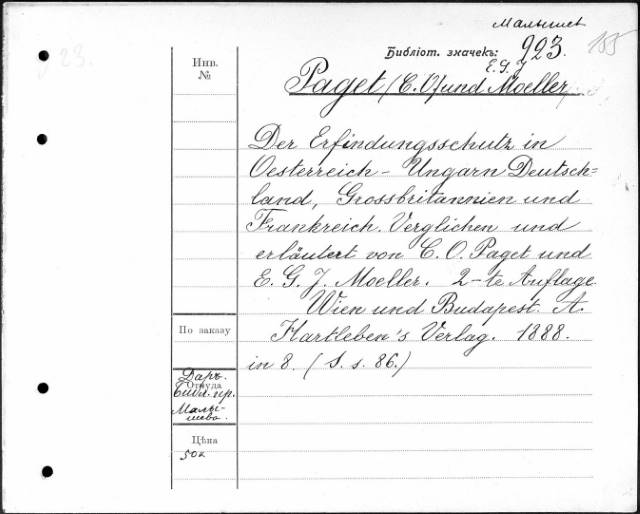 Малышев
Библіот. значекъ: 923. 155
Инв.
№
E. G. J.
Paget (C. O) und Moeller
Der Erfindungsschutz in
Oesterreich - Ungarn Deutsch=
land, Grossbritannien und
Frankreich. Verglichen und
erläutert von C. O. Paget und
E. G. J. Moeller. 2-te Auflage
Wien und Budapest. A.
По заказу
Hartleben's Verlag. 1888.
in 8. (S. s. 86.)
Даръ.
Откуда
Библ. пр.
Малы-
шева.
Цѣна
50к